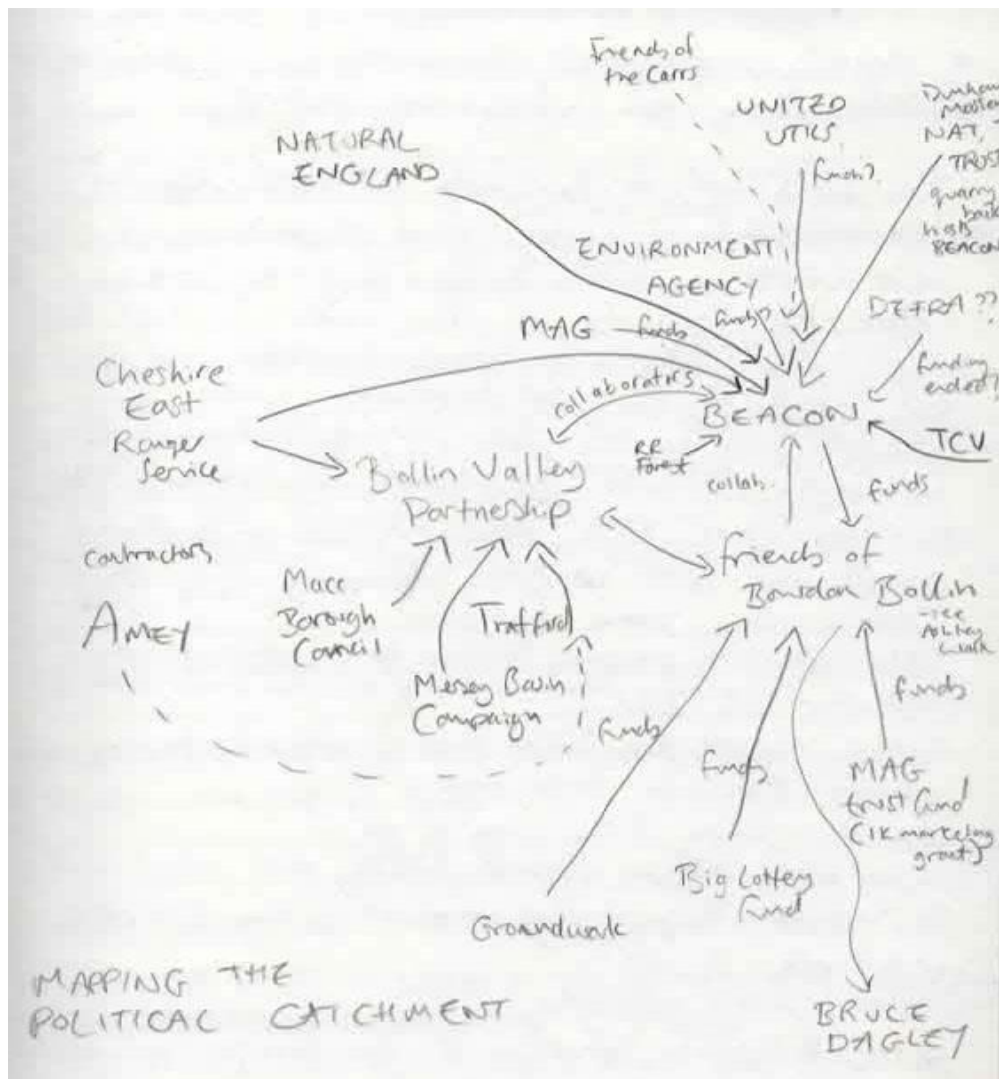 Friends of
the Carrs
UNITED
UTILS
funds?
Dunham
Massey
NAT.
TRUST
quarry
bank
hosts
BEACON
NATURAL
ENGLAND
ENVIRONMENT
AGENCY
funds?
DEFRA ??
funding
ended?
MAG
funds
Cheshire
East
Ranger
Service
collaborators
BEACON
RR
Forest
TCV
collab.
funds
Bollin Valley
Partnership
friends of
Bowdon Bollin
contractors
AMEY
Macc.
Borough
Council
Trafford
Mersey Basin
Campaign
funds
funds
funds
MAG
trust fund
(1K marketing
grant)
Big Lottery
fund
Groundwork
MAPPING THE
POLITICAL CATCHMENT
BRUCE
DAGLEY